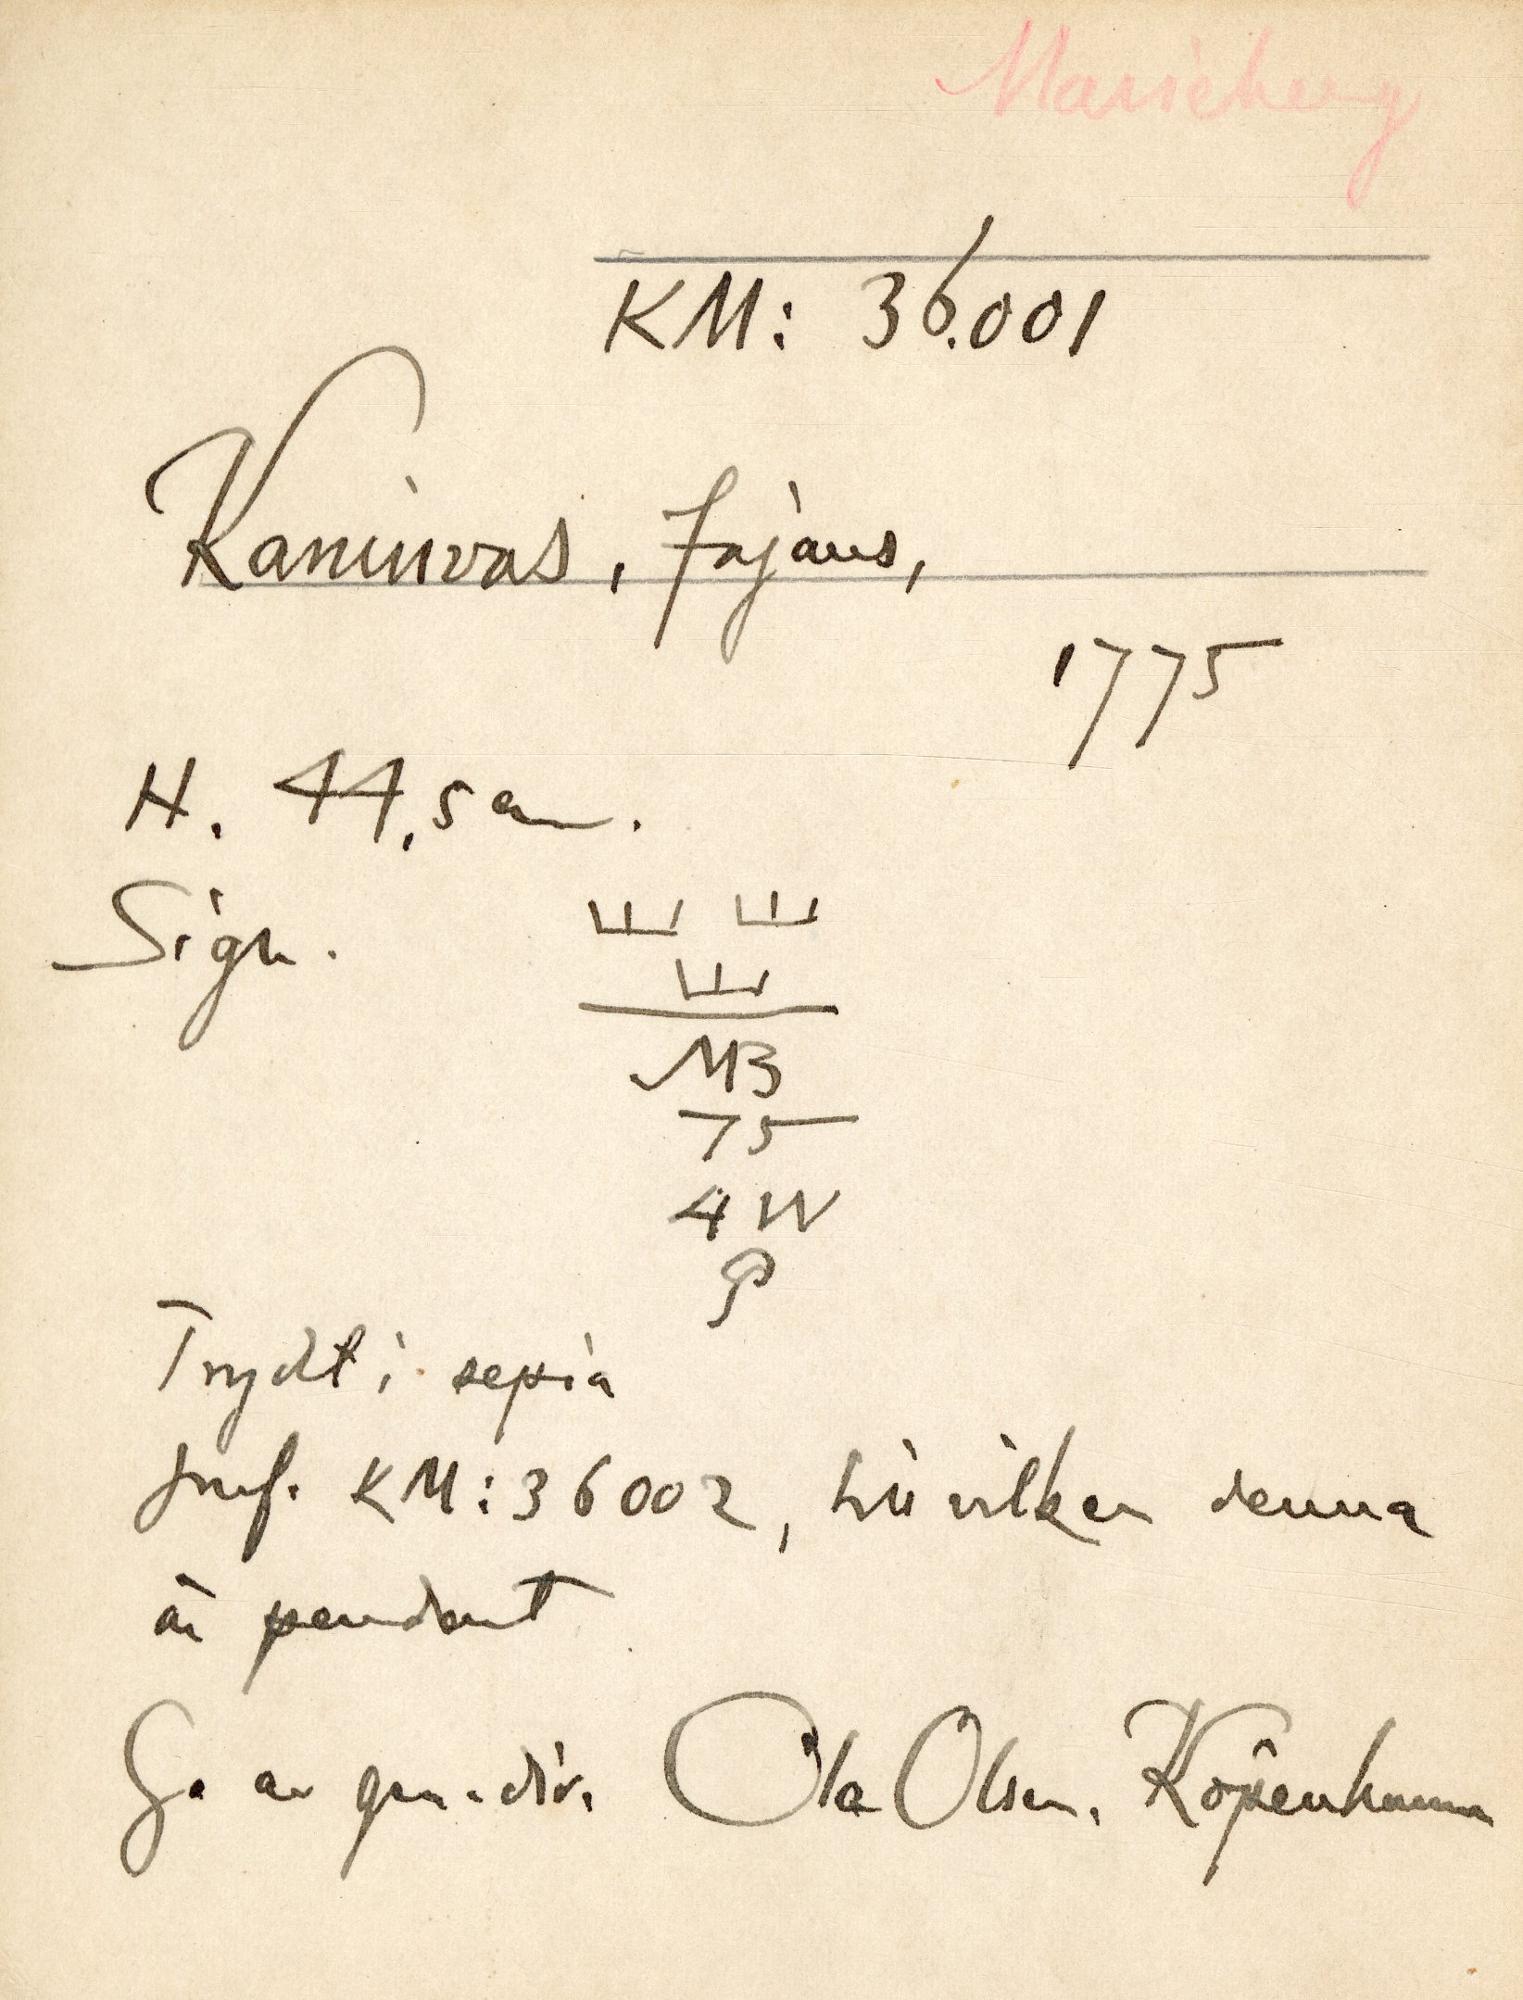 Marieberg
KM: 36.001
Kaninvas, Fajans,
1775
H. 44,5 cm.
Sign.
MB
75
4 W
P
Tryckt i sepia
Jmf. KM: 36002, till vilken denna
är pendant
Ga av gen.-dir. Ole Olsen, Köpenhamn